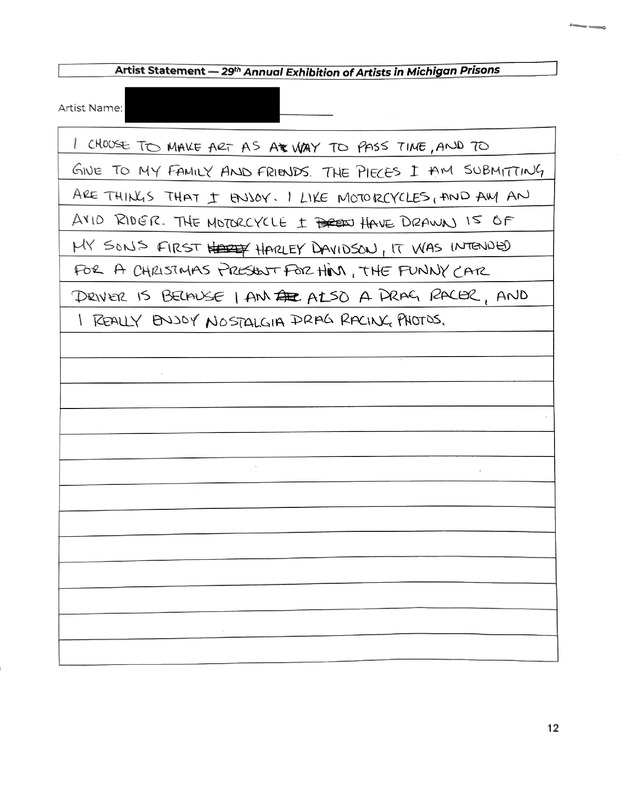 Artist Statement — 29th Annual Exhibition of Artists in Michigan Prisons
Artist Name:
I CHOOSE TO MAKE ART AS A WAY TO PASS TIME, AND TO
GIVE TO MY FAMILY AND FRIENDS. THE PIECES I AM SUBMITTING
ARE THINGS THAT I ENJOY. I LIKE MOTORCYCLES, AND AM AN
AVID RIDER. THE MOTORCYCLE I HAVE DRAWN IS OF
MY SONS FIRST HARLEY DAVIDSON, IT WAS INTENDED
FOR A CHRISTMAS PRESENT FOR HIM, THE FUNNY CAR
DRIVER IS BECAUSE I AM ALSO A DRAG RACER, AND
I REALLY ENJOY NOSTALGIA DRAG RACING PHOTOS.
12